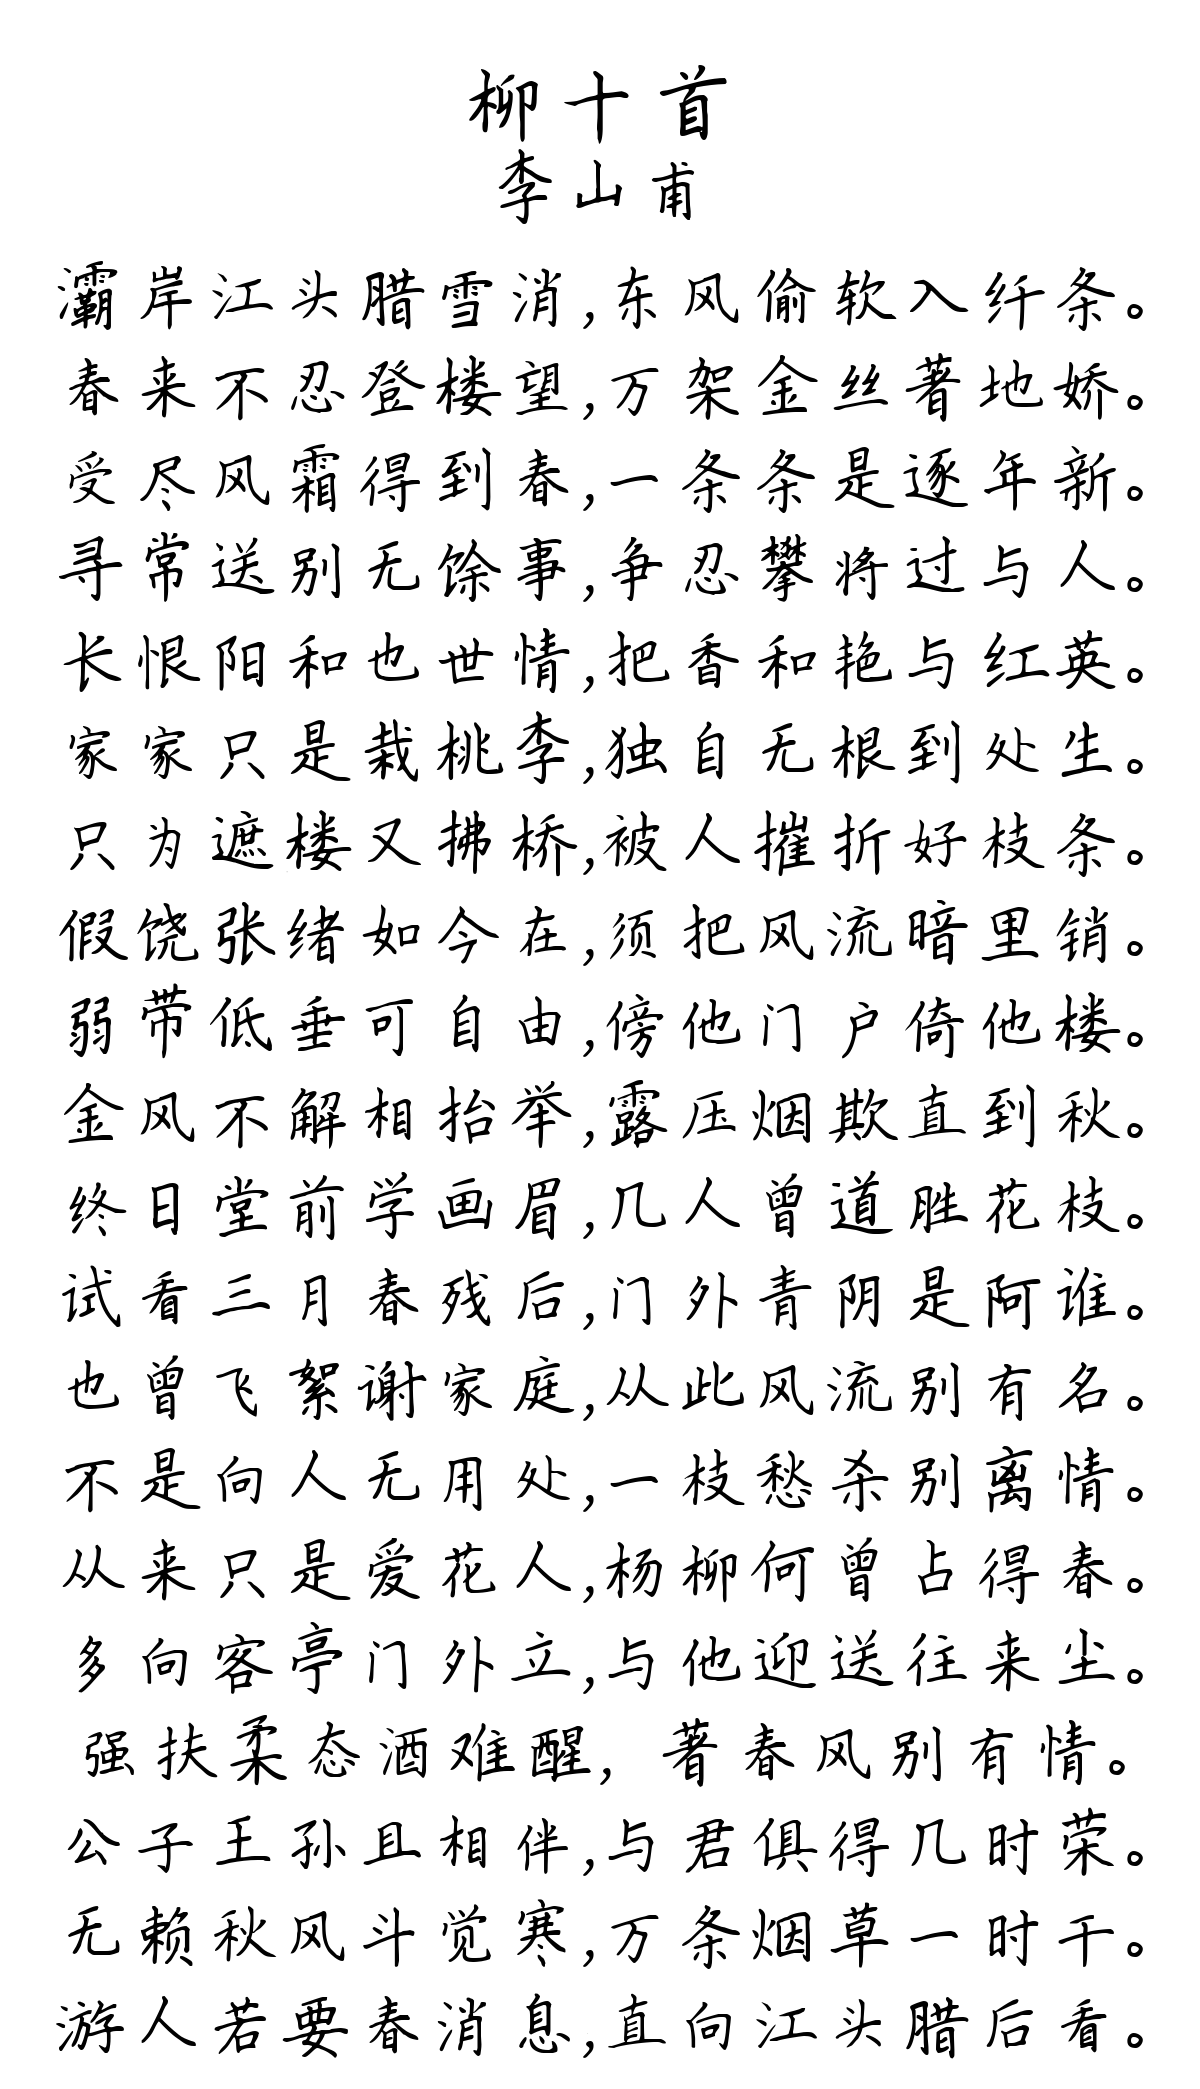 柳十首
李山甫
灞岸江头腊雪消,东风偷软入纤条。
春来不忍登楼望,万架金丝著地娇。
受尽风霜得到春,一条条是逐年新。
寻常送别无馀事,争忍攀将过与人。
长恨阳和也世情,把香和艳与红英。
家家只是栽桃李,独自无根到处生。
只为遮楼又拂桥,被人摧折好枝条。
假饶张绪如今在,须把风流暗里销。
弱带低垂可自由,傍他门户倚他楼。
金风不解相抬举,露压烟欺直到秋。
终日堂前学画眉,几人曾道胜花枝。
试看三月春残后,门外青阴是阿谁。
也曾飞絮谢家庭,从此风流别有名。
不是向人无用处,一枝愁杀别离情。
从来只是爱花人,杨柳何曾占得春。
多向客亭门外立,与他迎送往来尘。
强扶柔态酒难醒,著春风别有情。
公子王孙且相伴,与君俱得几时荣。
无赖秋风斗觉寒,万条烟草一时干。
游人若要春消息,直向江头腊后看。